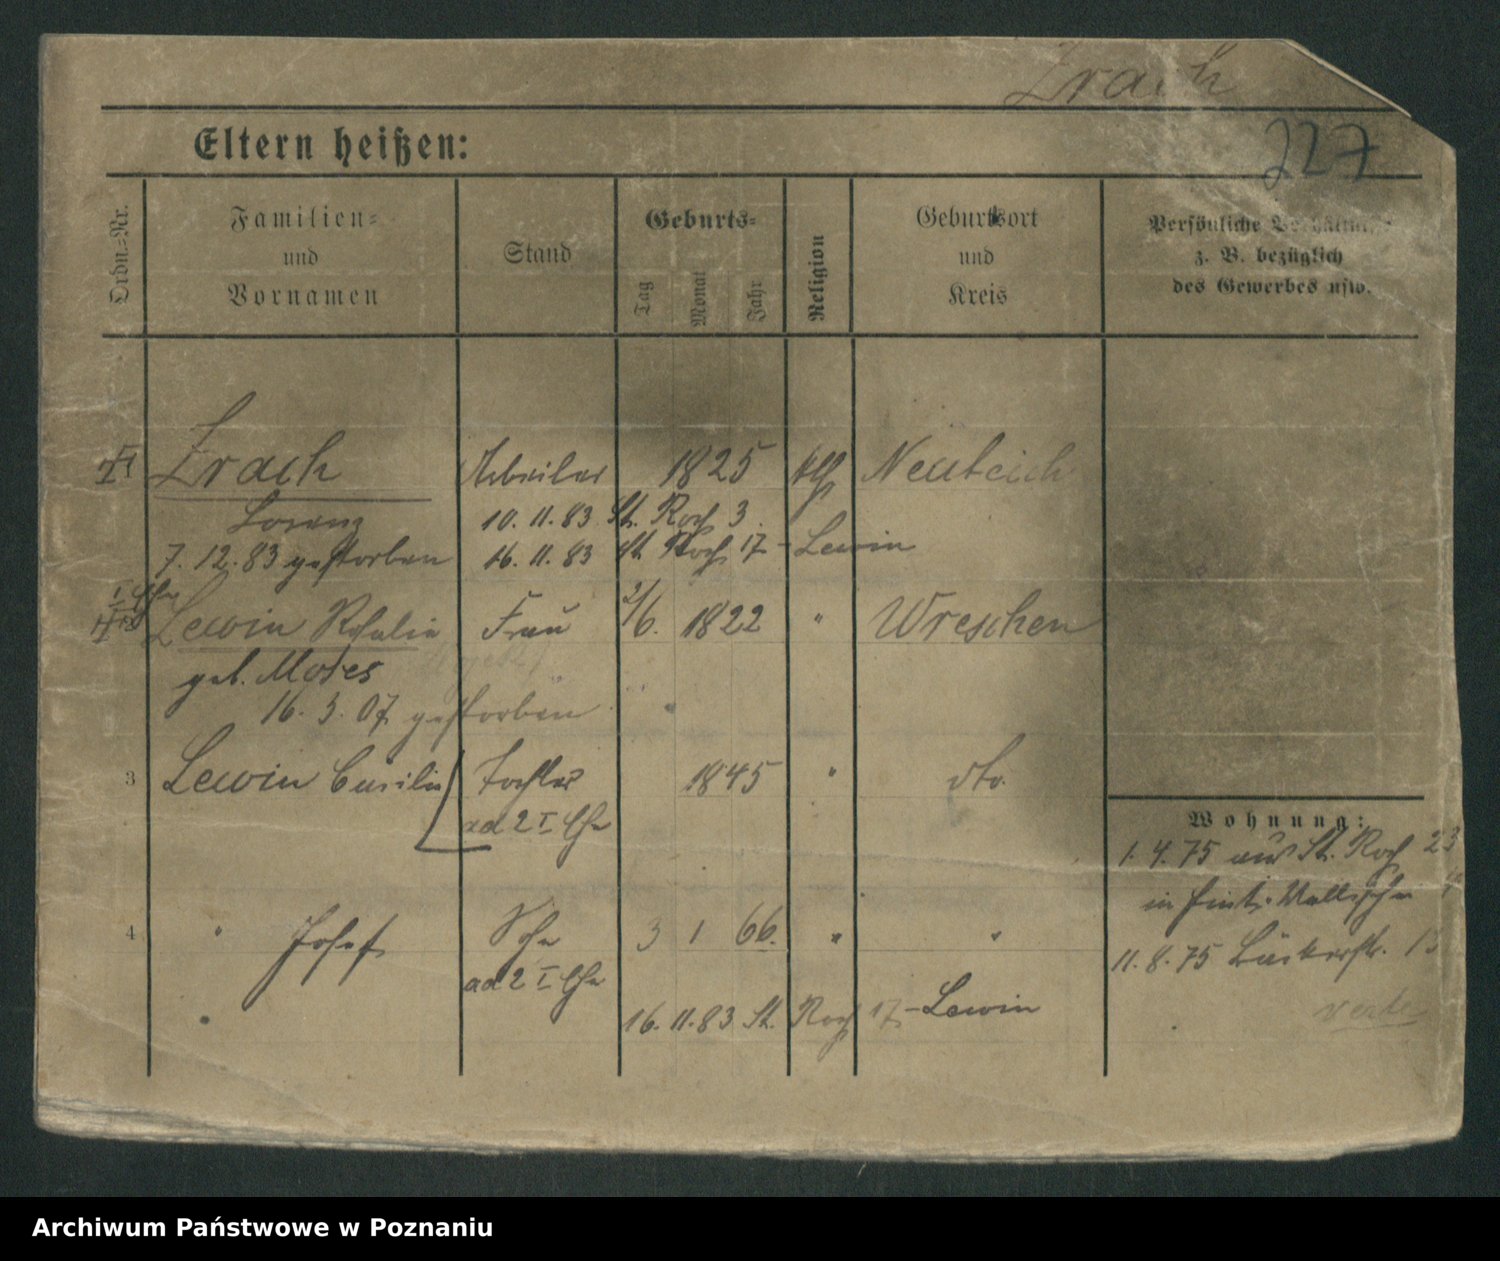 Zrach
227
Eltern heißen:
Ordn.=Nr.
Familien=
und
Vornamen
Stand
Geburts=
Tag
Monat
Jahr
Religion
Geburtsort
und
Kreis
Persönliche Verhältnisse
z. B. bezüglich
des Gewerbes usw.
Zrach Arbeiter 1825 kth Neuteich
Lorenz 10. 11. 83 St. Roch 3.
7. 12. 83 gestorben 16. 11. 83 St. Roch 17 - Lewin
I Ehe
Lewin Rosalie Frau 2/6. 1822 " Wreschen
geb. Moses
16. 3. 07 gestorben
3 Lewin Cäsilie Tochter 1845 " dto.
ad 2 I Ehe
Wohnung:
1. 4. 75 aus St. Roch 23
in Hint. Wallischei
4 " Josef Sohn 3 1 66. " "
11. 8. 75 Bäckerstr. 13
ad 2 I Ehe
16. 11. 83 St. Roch 17 - Lewin
verte
Archiwum Państwowe w Poznaniu